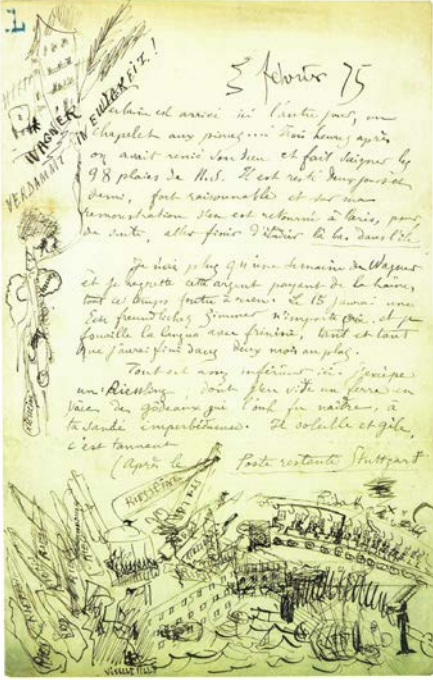 5 février 75
Verlaine est arrivé ici l'autre jour, un
chapelet aux pinces... Trois heures après
on avait renié son dieu et fait saigner les
98 plaies de N.S. Il est resté deux jours et
demi, fort raisonnable et sur ma
remonstration s'en est retourné à Paris, pour,
de suite, aller finir d'étudier là bas dans l'île.
Je n'ai plus qu'une semaine de Wagner
et je regrette cette argent payant de la haine,
tout ce temps foutu à rien. Le 15 j'aurai une
Ein freundliches Zimmer n'importe où, et je
fouaille la langue avec frénésie, tant et tant
que j'aurai fini dans deux mois au plus.
Tout est assez inférieur ici - j'excèpe
un: Riessling, dont j'en vite un ferre en
vâce des gôdeaux gui l'onh fu naîdre, à
ta santé imperbédueuse. Il soleille et gèle,
c'est tannant
(Après le Poste restante Stuttgart
WAGNER
VERDAMMT IN EWIGKEIT!
RIESSLING
VIEILLE VILLE